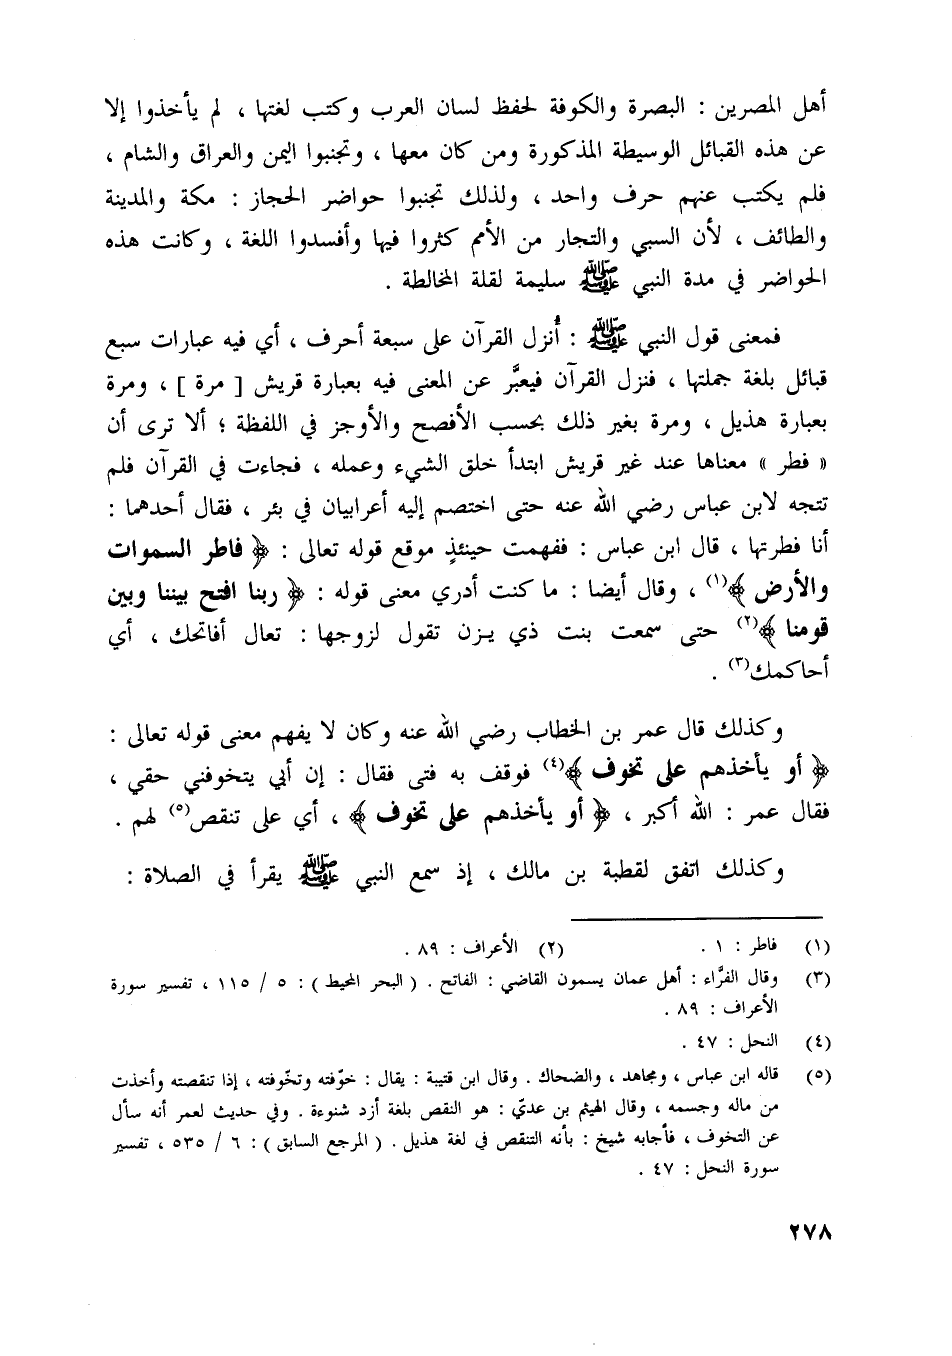 أهل المصرين : البصرة والكوفة لحفظ لسان العرب وكتب لغتها ، لم يأخذوا إلا
عن هذه القبائل الوسيطة المذكورة ومن كان معها ، وتجنبوا اليمن والعراق والشام ،
فلم يكتب عنهم حرف واحد ، ولذلك تجنبوا حواضر الحجاز : مكة والمدينة
والطائف ، لأن السبي والتجار من الأمم كثروا فيها وأفسدوا اللغة ، وكانت هذه
الحواضر في مدة النبي ﷺ سليمة لقلة المخالطة .
فمعنى قول النبي ﷺ : أُنزل القرآن على سبعة أحرف ، أي فيه عبارات سبع
قبائل بلغة جملتها ، فنزل القرآن فيعبَّر عن المعنى فيه بعبارة قريش [ مرة ] ، ومرة
بعبارة هذيل ، ومرة بغير ذلك بحسب الأفصح والأوجز في اللفظة ؛ ألا ترى أن
« فطر » معناها عند غير قريش ابتدأ خلق الشيء وعمله ، فجاءت في القرآن فلم
تتجه لابن عباس رضي الله عنه حتى اختصم إليه أعرابيان في بئر ، فقال أحدهما :
أنا فطرتها ، قال ابن عباس : ففهمت حينئذٍ موقع قوله تعالى : ﴿ فاطر السموات
والأرض ﴾(١) ، وقال أيضا : ما كنت أدري معنى قوله : ﴿ ربنا افتح بيننا وبين
قومنا ﴾(٢) حتى سمعت بنت ذي يـزن تقول لزوجها : تعال أفاتحك ، أي
أحاكمك(٣) .
وكذلك قال عمر بن الخطاب رضي الله عنه وكان لا يفهم معنى قوله تعالى :
﴿ أو يأخذهم على تخوف ﴾(٤) فوقف به فتى فقال : إن أبي يتخوفني حقي ،
فقال عمر : الله أكبر ، ﴿ أو يأخذهم على تخوف ﴾ ، أي على تنقص(٥) لهم .
وكذلك اتفق لقطبة بن مالك ، إذ سمع النبي ﷺ يقرأ في الصلاة :
(١) فاطر : ١ . (٢) الأعراف : ٨٩ .
(٣) وقال الفرَّاء : أهل عمان يسمون القاضي : الفاتح . ( البحر المحيط ) : ٥ / ١١٥ ، تفسير سورة
الأعراف : ٨٩ .
(٤) النحل : ٤٧ .
(٥) قاله ابن عباس ، ومجاهد ، والضحاك . وقال ابن قتيبة : يقال : خوّفته وتخّوفته ، إذا تنقصته وأخذت
من ماله وجسمه ، وقال الهيثم بن عديّ : هو النقص بلغة أزد شنوءة . وفي حديث لعمر أنه سأل
عن التخوف ، فأجابه شيخ : بأنه التنقص في لغة هذيل . ( المرجع السابق ) : ٦ / ٥٣٥ ، تفسير
سورة النحل : ٤٧ .
٢٧٨